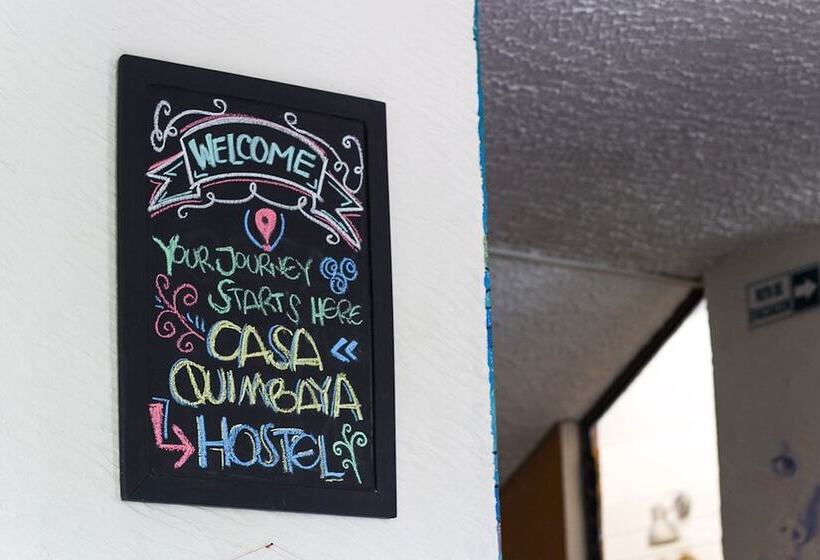 WELCOME
YOUR JOURNEY
STARTS HERE
CASA
QUIMBAYA
HOSTEL
RUTA DE
EVACUACION